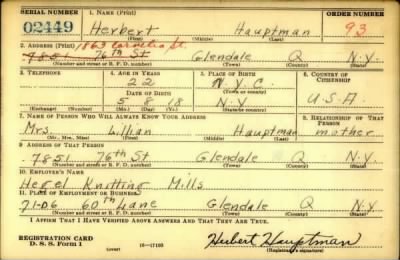 SERIAL NUMBER 1. NAME (Print) ORDER NUMBER
02449 Herbert Hauptman 93
(First) (Middle) (Last)
2. ADDRESS (Print) 1863 Cornelia St.
7851 76th St Glendale Q N.Y.
(Number and street or R. F. D. number) (Town) (County) (State)
3. TELEPHONE 4. AGE IN YEARS 5. PLACE OF BIRTH 6. COUNTRY OF CITIZENSHIP
22 N.Y.C.
DATE OF BIRTH (Town or county)
5 8 18 N.Y. U.S.A.
(Exchange) (Number) (Mo.) (Day) (Yr.) (State or country)
7. NAME OF PERSON WHO WILL ALWAYS KNOW YOUR ADDRESS 8. RELATIONSHIP OF THAT PERSON
Mrs. Lillian Hauptman mother
(Mr., Mrs., Miss) (First) (Middle) (Last)
9. ADDRESS OF THAT PERSON
7851 76th St Glendale Q N.Y.
(Number and street or R. F. D. number) (Town) (County) (State)
10. EMPLOYER'S NAME
Hegel Knitting Mills
11. PLACE OF EMPLOYMENT OR BUSINESS
71-06 60th Lane Glendale Q N.Y.
(Number and street or R. F. D. number) (Town) (County) (State)
I AFFIRM THAT I HAVE VERIFIED ABOVE ANSWERS AND THAT THEY ARE TRUE.
REGISTRATION CARD
D. S. S. Form 1 (over) 16—17105 Herbert Hauptman
(Registrant's signature)